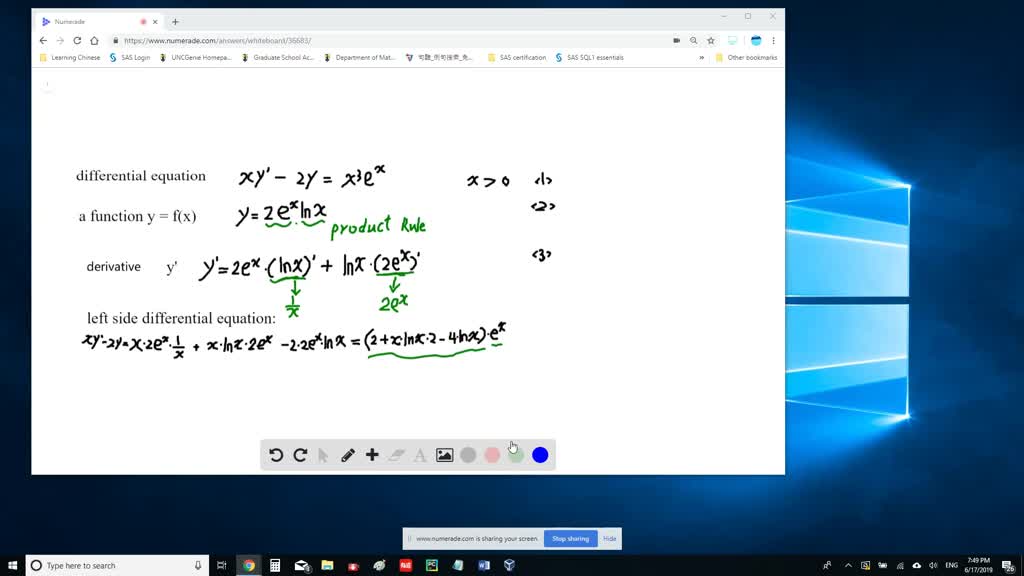 Numerade
https://www.numerade.com/answers/whiteboard/36683/
Learning Chinese SAS Login UNCGenie Homepa... Graduate School Ac... Department of Mat... SAS certification SAS SQL1 essentials » Other bookmarks
differential equation xy' - 2y = x³eˣ x > 0 <1>
a function y = f(x) y = 2eˣ lnx <2>
product Rule
derivative y' y' = 2eˣ·(lnx)' + lnx·(2eˣ)' <3>
1/x 2eˣ
left side differential equation:
xy'-2y = x·2eˣ·1/x + x·lnx·2eˣ - 2·2eˣ·lnx = (2+x·lnx·2-4·lnx)·eˣ
A
www.numerade.com is sharing your screen. Stop sharing Hide
Type here to search
ENG 7:49 PM
6/17/2019
26